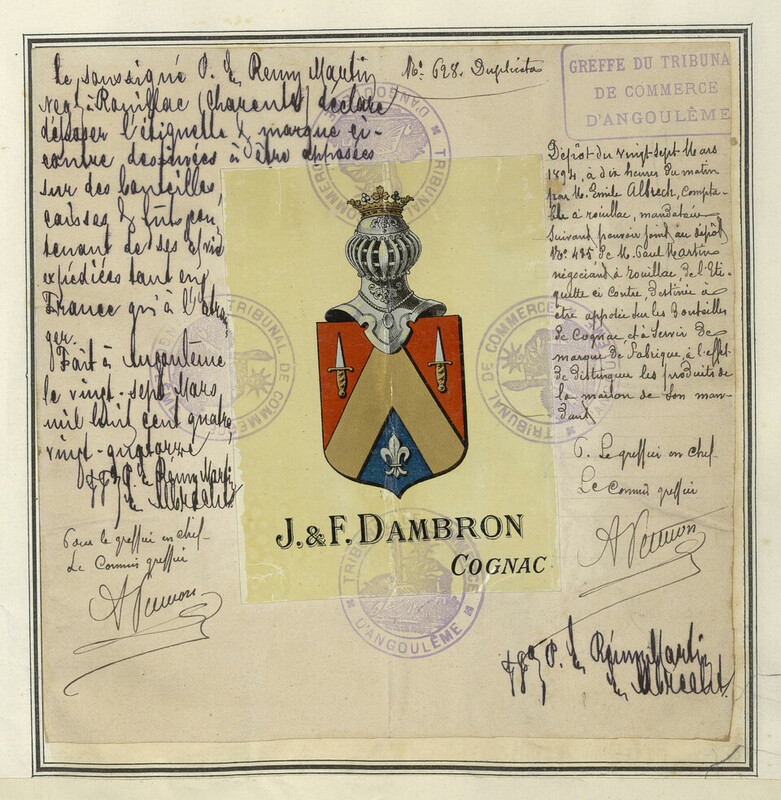 Le soussigné P. E. Remy Martin
Negt à Rouillac (Charente) déclare
déposer l'étiquette & marque ci-
contre destinées à être apposées
sur des bouteilles,
caisses & fûts con
tenant de ses
expédiées tant en
France qu'à l'étran
ger.
Fait à Angoulême
le vingt-sept Mars
mil huit cent quatre
vingt-quatorze
P. E. Remy Martin
Pour le greffier en chef
Le Commis greffier
No. 628. Duplicata
GREFFE DU TRIBUNA
DE COMMERCE
D'ANGOULÊME
Dépôt du vingt-sept Mars
1894, à dix heures du matin
par M. Emile Albrech, compta-
ble à rouillac, mandataire
suivant pouvoir joint au dépôt
No. 485 de M. Paul Martin
négociant à rouillac, de l'Eti-
quette ci contre, destinée à
être apposée sur les bouteilles
de Cognac, et à servir de
marque de fabrique, à l'effet
de distinguer les produits de
la maison de son man-
dant
P. Le greffier en chef
Le Commis greffier
J. & F. DAMBRON
COGNAC
TRIBUNAL DE COMMERCE
D'ANGOULÊME
P. E. Rémy Martin